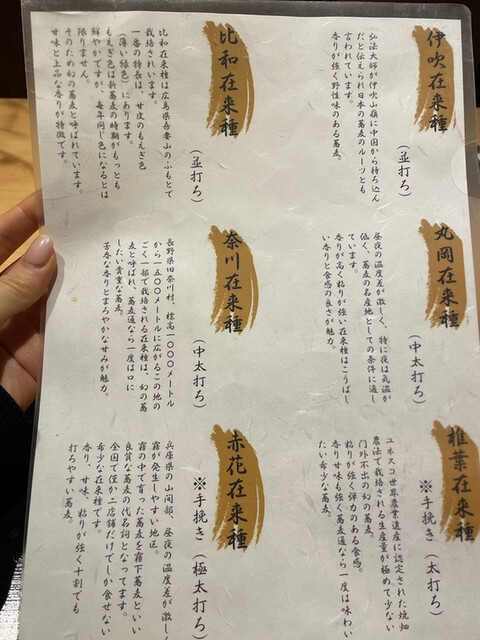 伊吹在来種
(並打ち)
弘法大師が伊吹山嶺に中国から持ち込ん
だと伝えられ日本の蕎麦のルーツとも
言われています。
香りが強く野性味のある蕎麦。
比和在来種
(並打ち)
比和在来種は広島県吾妻山のふもとで
栽培されいます。
一番の特長は、甘皮のもえぎ色
(薄い緑色)にあります。
もえぎ色は新蕎麦の時期がもっとも
鮮やかですが、毎年同じ色になるとは
限りません。
そのため幻の蕎麦と呼ばれています。
甘味と上品な香りが特徴です。
丸岡在来種
(中太打ち)
昼夜の温度差が激しく、特に夜は気温が
低く、蕎麦の名産地としての条件に適し
ています。
香りが高く粘りが強い在来種はこうばし
い香りと食感の良さが魅力。
奈川在来種
(中太打ち)
長野県旧奈川村、標高一〇〇〇メートル
から一五〇〇メートルに広がるこの地の
ごく一部で栽培される在来種は、幻の蕎
麦と呼ばれ、蕎麦通なら一度は口に
したい貴重な蕎麦。
芳香な香りとまろやかな甘みが魅力。
椎葉在来種
※手挽き(太打ち)
ユネスコ世界農業遺産に認定された焼畑
農法で栽培される生産量が極めて少ない
門外不出の幻の蕎麦。
粘りが強く弾力のある食感。
香り甘味も強く蕎麦通なら一度は味わい
たい希少な蕎麦。
赤花在来種
※手挽き(極太打ち)
兵庫県の山間部、昼夜の温度差が激しく
霧が発生しやすい地区。
霧の中で育った蕎麦を霧下蕎麦といい
良質な蕎麦の代名詞となってます。
全国で僅か二店舗だけでしか食せない
希少な在来種です。
香り、甘味、粘りが強く十割でも
打ちやすい蕎麦。